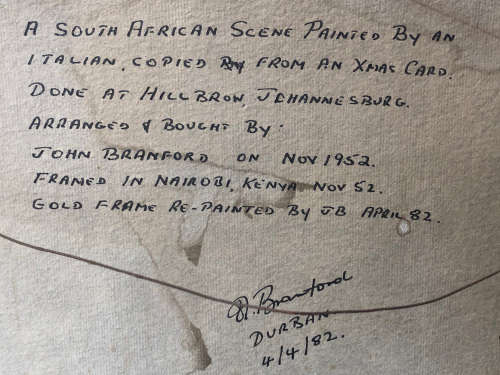 A SOUTH AFRICAN SCENE PAINTED BY AN
ITALIAN, COPIED BY FROM AN XMAS CARD.
DONE AT HILLBROW JOHANNESBURG.
ARRANGED & BOUGHT BY:
JOHN BRANFORD ON NOV 1952.
FRAMED IN NAIROBI, KENYA NOV 52.
GOLD FRAME RE-PAINTED BY JB APRIL 82.
J. Branford
DURBAN
4/4/82.